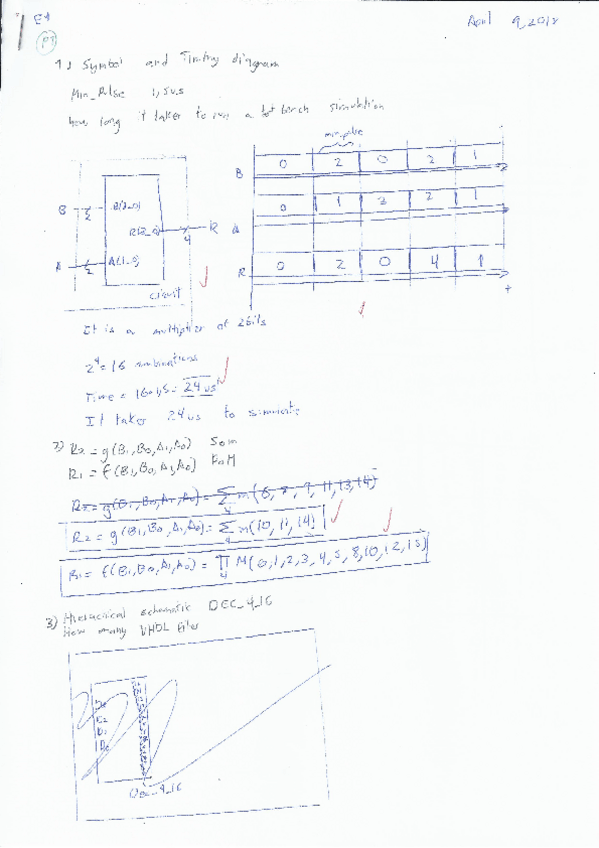 E4
P1
April 9, 2018
1) Symbol and Timing diagram
Min_Pulse 1,5us
how long it takes to run a test bench simulation
min_pulse
B 0 2 0 2 1
A 0 1 2 2 1
R 0 2 0 4 1
t
B 2 B(1_0)
R(3_0) 4 R
A 2 A(1_0)
circuit
It is a multiplier of 2bits
2^4 = 16 combinations
Time = 16·1,5 = 24us
It takes 24us to simulate
2) R2 = g(B1,B0,A1,A0) SOM
R1 = f(B1,B0,A1,A0) POM
R2 = g(B1,B0,A1,A0) = Σ4 m(10,11,14)
R1 = f(B1,B0,A1,A0) = Π4 M(0,1,2,3,4,5,8,10,12,15)
3) Hierarchical schematic DEC_4_16
How many VHDL files
Dec_4_16